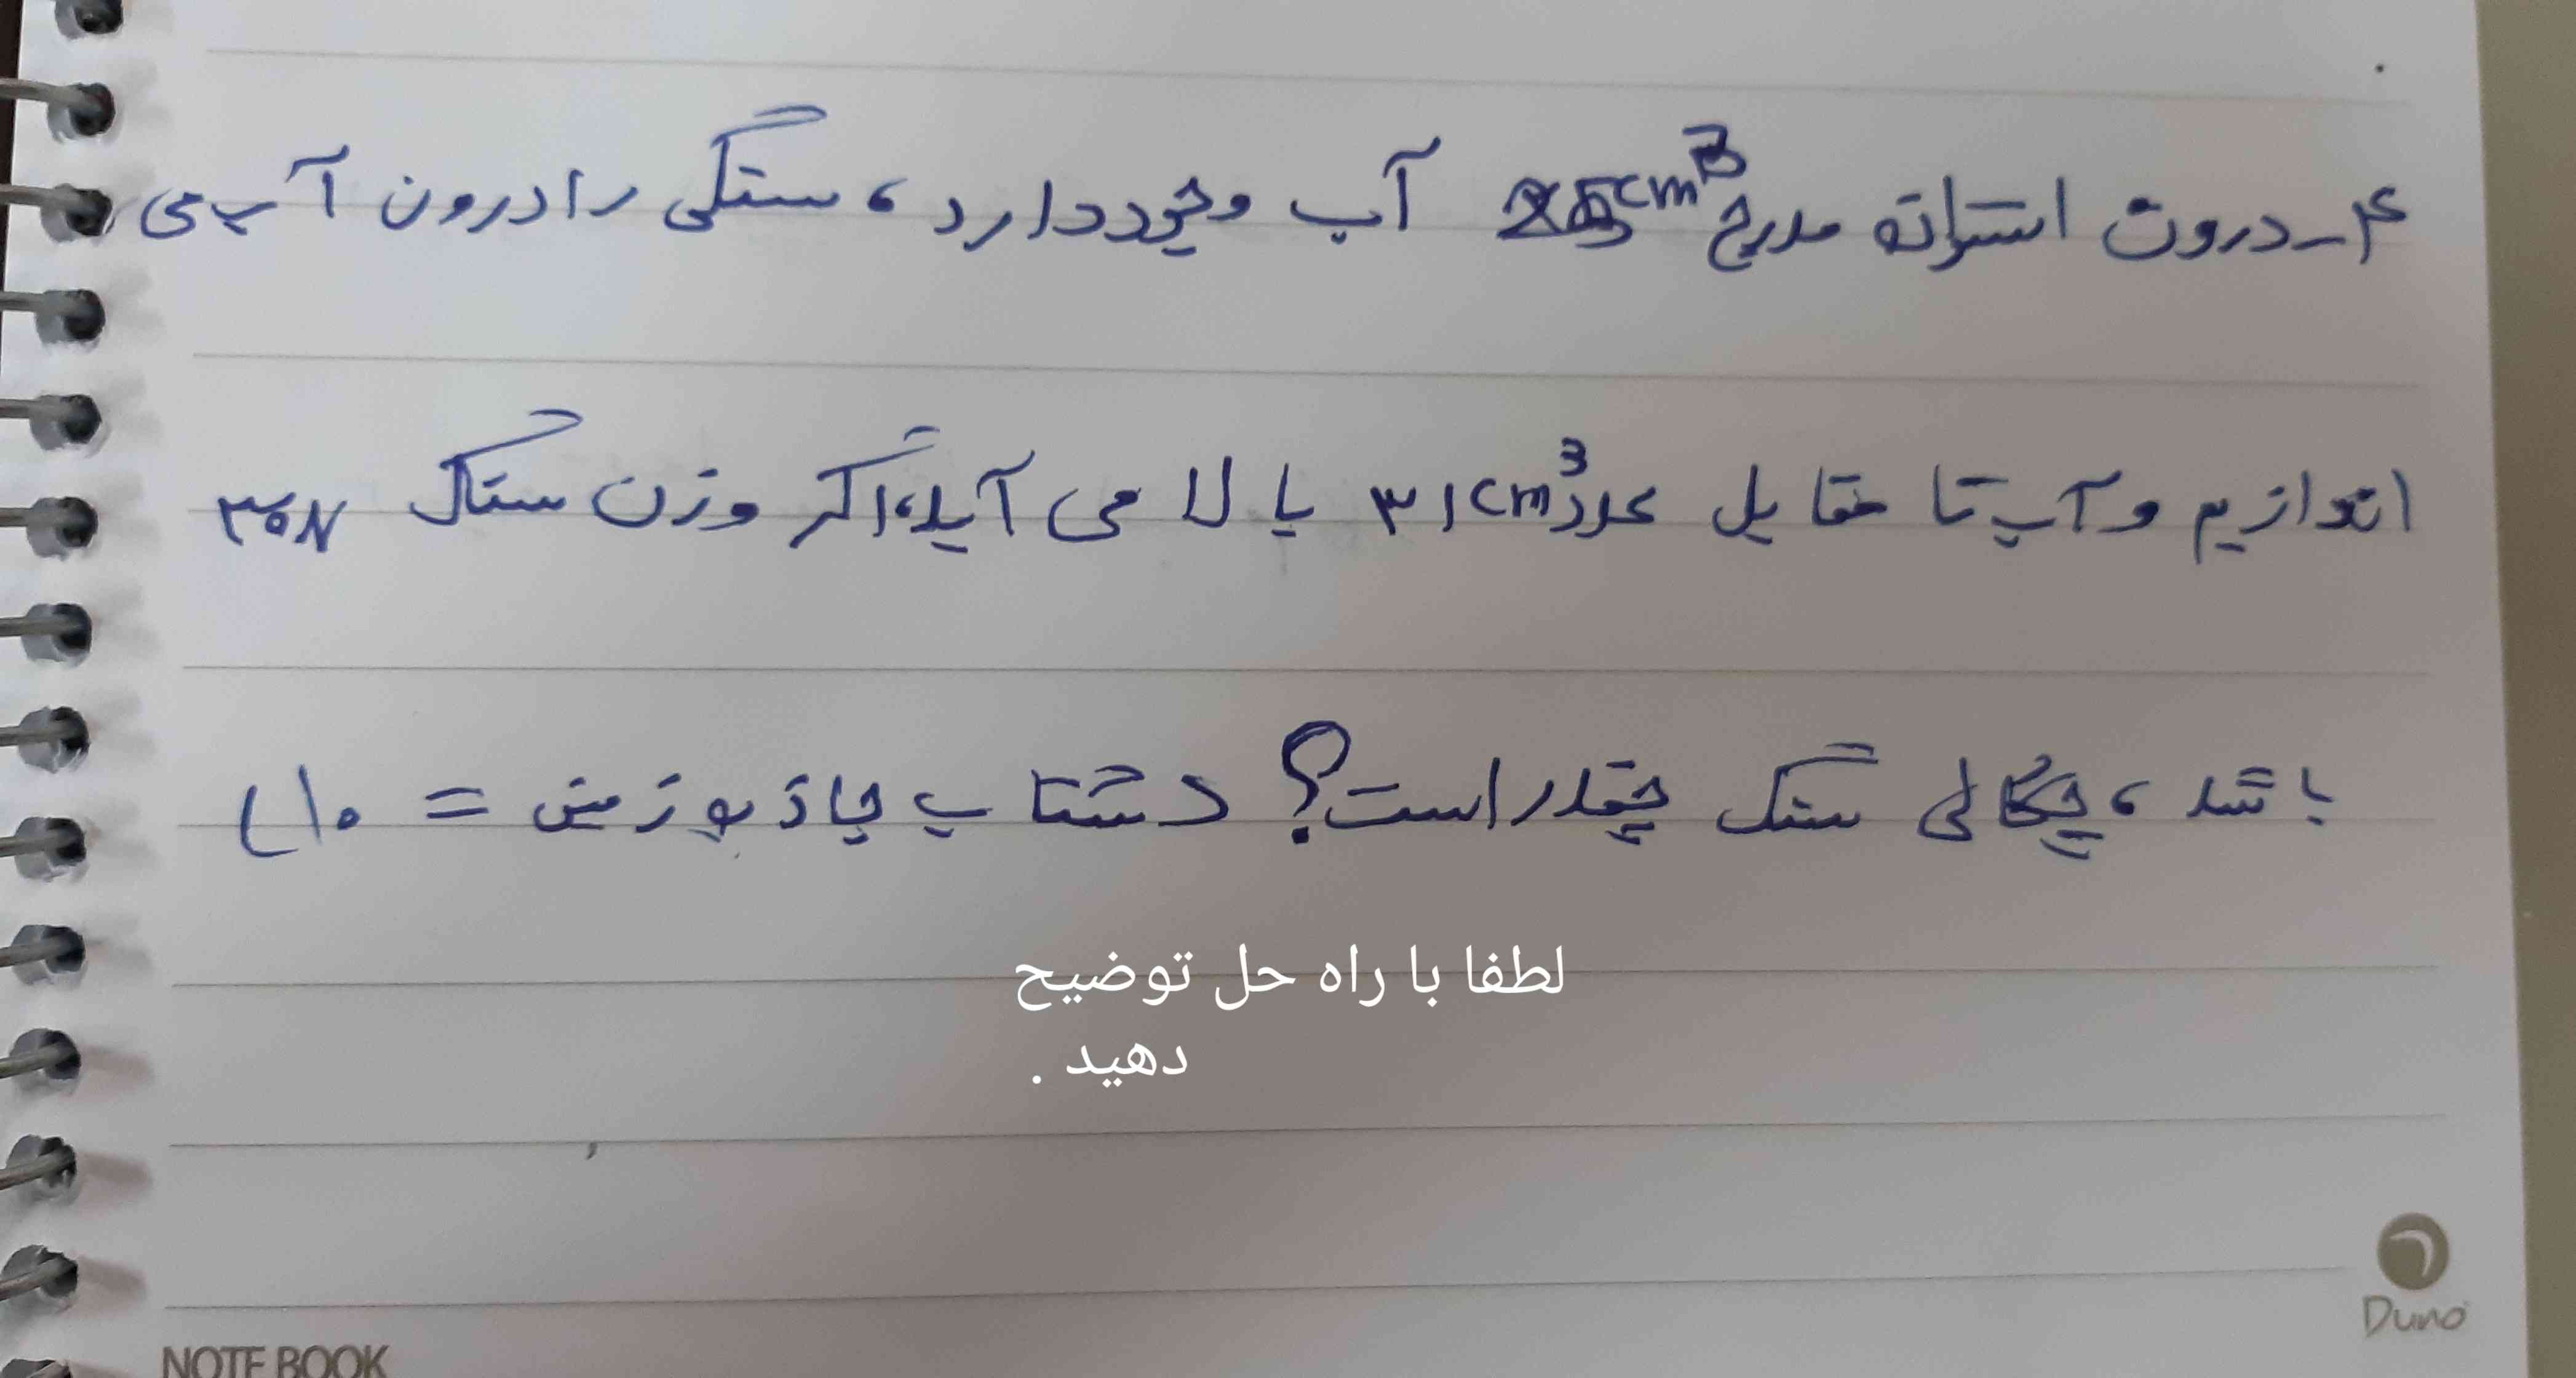 ۴ - درون استوانه مدرج 25cm³ آب وجود دارد ، سنگی را درون آب می
اندازیم و آب تا مقابل عدد ۳۱cm³ بالا می آید، اگر وزن سنگ ۳۰N
باشد ، چگالی سنگ چقدر است؟ (شتاب جاذبه زمین = ۱۰)
لطفا با راه حل توضیح
دهید .
Duno
NOTE BOOK